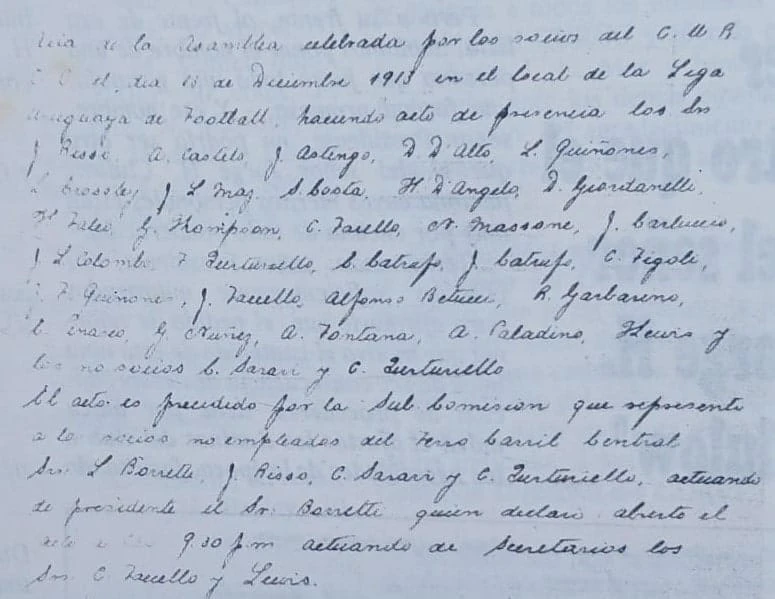 de la Asamblea celebrada por los socios del C. U R
C. el dia 13 de Diciembre 1913 en el local de la Liga
Uruguaya de Football, haciendo acto de presencia los Srs
J Risso A. Castelo, J. Astengo, D D'Alto, L. Quiñones,
Crossley J L Maz S. Costa, H D'Angelo, D. Giordanelli,
G. Thompson, C. Facello, N. Massone, J. Carluccio,
J L. Colombo F Zurturiello, C. Catrufo, J Catrufo, C. Figoli,
F Quiñones, J. Facello, Alfonso Betucci, R. Garbarino,
G Nuñez, A. Fontana, A. Paladino, Hewis y
los no socios C. Saravi y C. Zurturiello
El acto es precidido por la Sub Comision que represente
a lo socios no empleados del Ferro Carril Central
Srs. L Borrette, J. Risso, C. Saravi y C. Zurturiello, actuando
de presidente el Sr. Borretti quien declaró abierto el
9.30 p.m actuando de Secretarios los
Srs. C. Facello y Lewis.